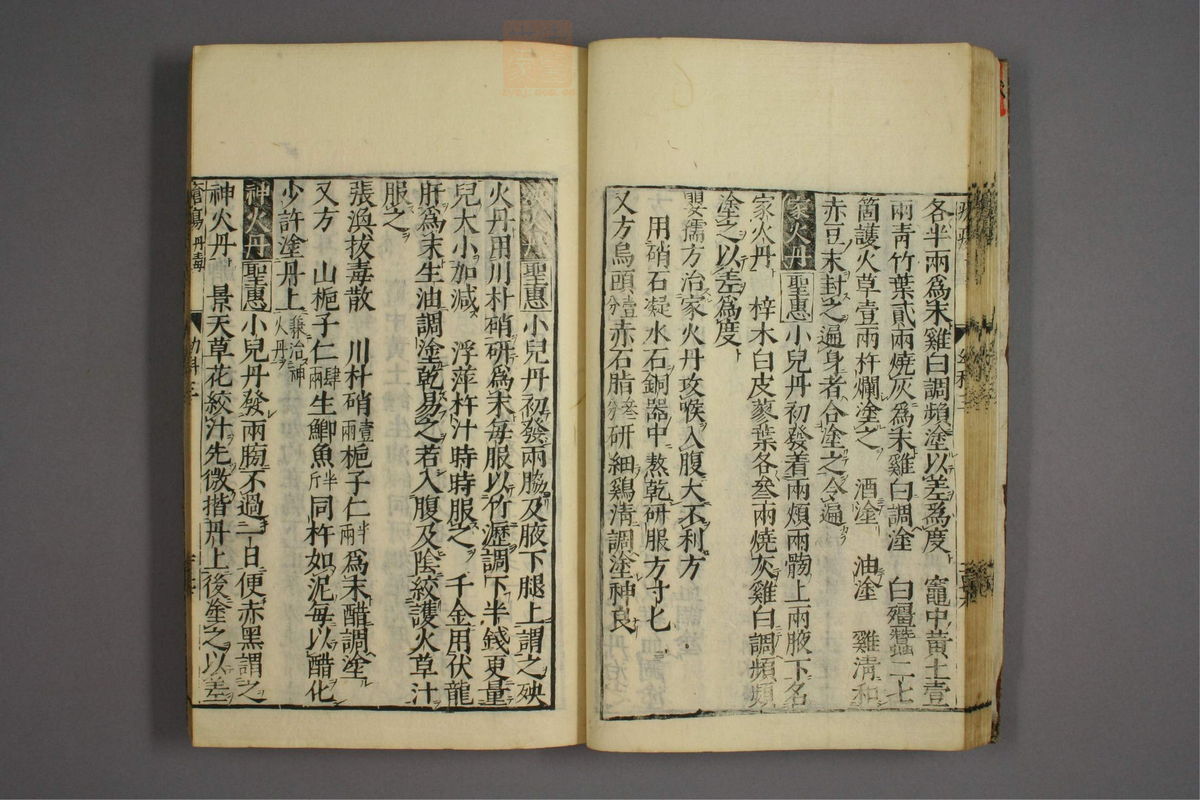 各半兩爲末雞白調頻塗以差爲度　竈中黃土壹
兩青竹葉貳兩燒灰爲末雞白調塗　白殭蠶二七
箇護火草壹兩杵爛塗之　酒塗　油塗　雞清和
赤豆末封之遍身者合塗之令遍
家火丹　聖惠　小兒丹初發着兩頰兩髀上兩腋下名
家火丹　梓木白皮蓼葉各叄兩燒灰雞白調頻頻
塗之以差爲度
嬰孺方治家火丹攻喉入腹大不利方
用硝石凝水石銅器中熬乾研服方寸匕
又方烏頭壹分赤石脂叄分研細鷄清調塗神良
聖惠　小兒丹初發兩脇及腋下腿上謂之殃
火丹用川朴硝研爲末每服以竹瀝調下半錢更量
兒大小加減　浮萍杵汁時時服之　千金用伏龍
肝爲末生油調塗乾易之若入腹及陰絞護火草汁
服之
張渙拔毒散　川朴硝壹兩梔子仁半兩爲末醋調塗
又方　山梔子仁肆兩生鯽魚半斤同杵如泥每以醋化
少許塗丹上兼治神火丹
神火丹　聖惠　小兒丹發兩膊不過二日便赤黑謂之
神火丹　景天草花絞汁先微揩丹上後塗之以差
瘡瘍　丹毒　幼科三